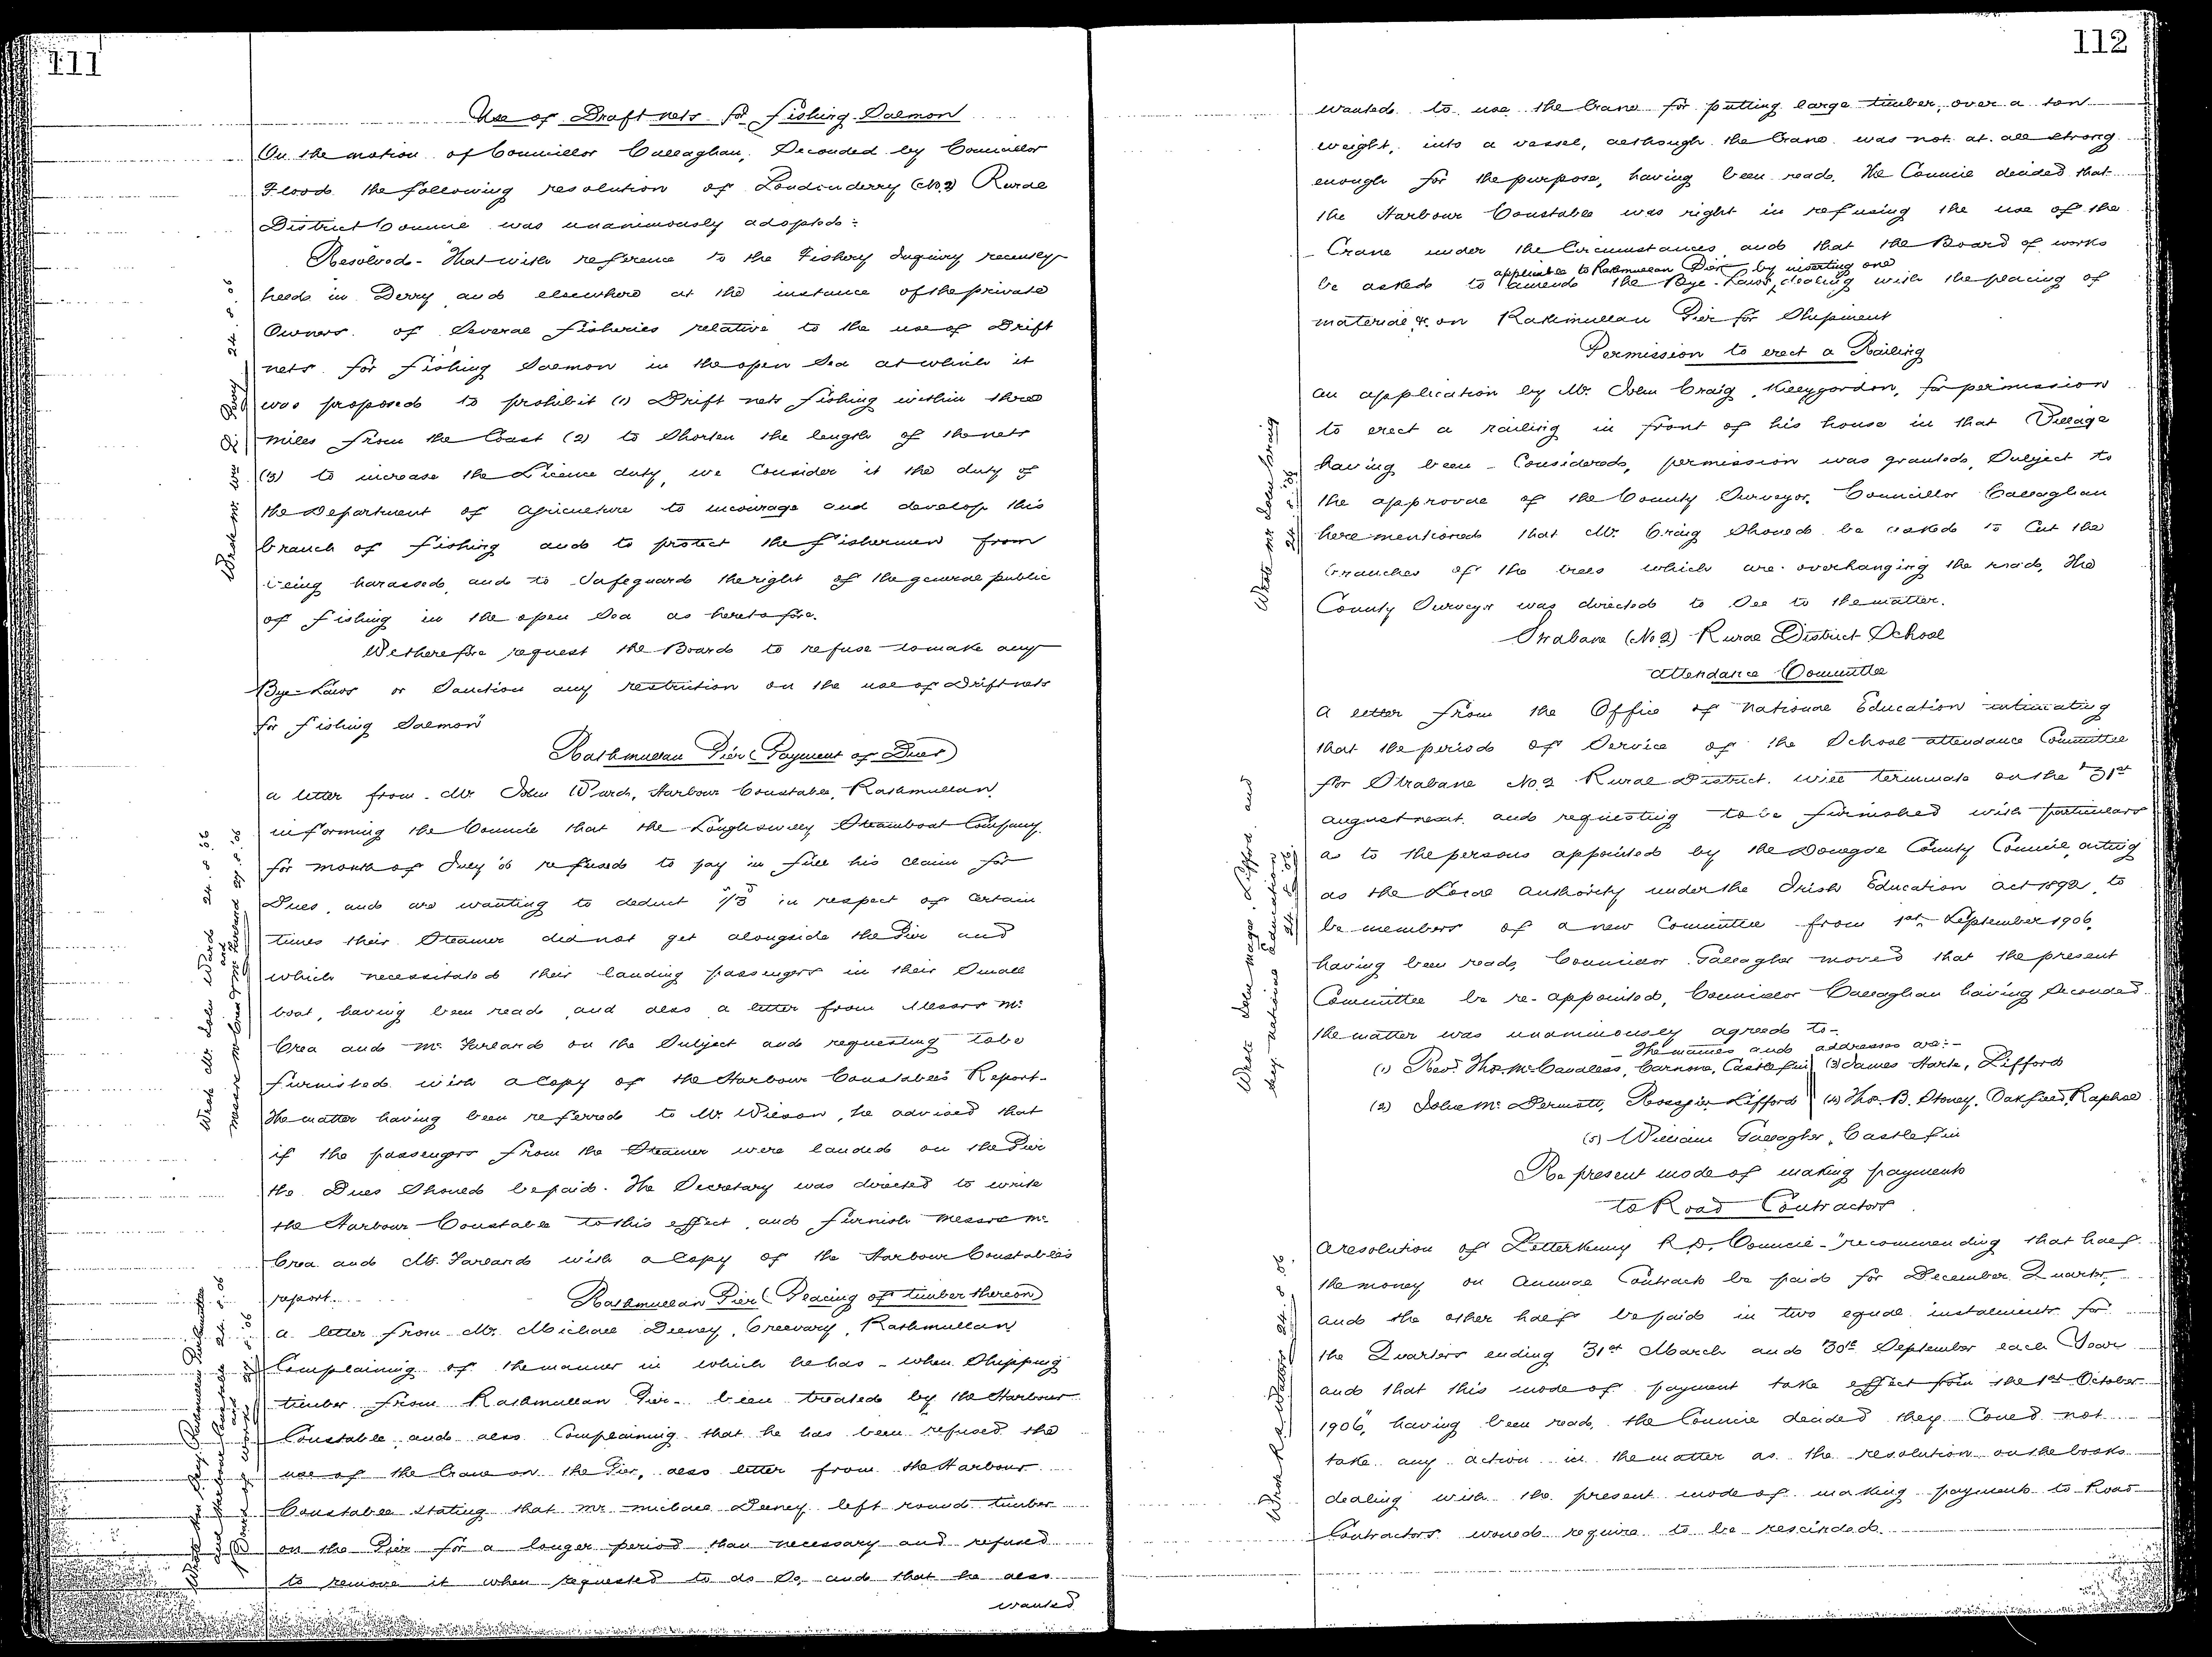 111
Use of Draft nets for fishing Salmon
On the motion of Councillor Callaghan, Seconded by Councillor
Flood the following resolution of Londonderry (No 2) Rural
District Council was unanimously adopted:
Resolved - "That with reference to the Fishery Inquiry recently
held in Derry and elsewhere at the instance of the private
Owners of Several fisheries relative to the use of Drift
nets for fishing Salmon in the open Sea at which it
was proposed to prohibit (1) Drift nets fishing within three
miles from the Coast (2) to Shorten the length of the nets
(3) to increase the Licence duty, we Consider it the duty of
the Department of Agriculture to encourage and develop this
branch of fishing and to protect the fishermen from
being harassed, and to Safeguard the right of the general public
of fishing in the open Sea as heretofore.
We therefore request the Board to refuse to make any
Bye-Laws or Sanction any restriction on the use of Drift nets
for fishing Salmon"
Rathmullan Pier (Payment of Dues)
A letter from Mr John Ward, Harbour Constable, Rathmullan
informing the Council that the Loughswilly Steamboat Company
for month of July '06 refused to pay in full his claim for
Dues, and are wanting to deduct in respect of Certain
times their Steamer did not get alongside the Pier and
which necessitated their landing passengers in their Small
boat, having been read and also a letter from Messrs Mc
Crea and Mc Farland on the Subject and requesting to be
furnished with a Copy of the Harbour Constable's Report.
The matter having been referred to Mr Wilson, he advised that
if the passengers from the Steamer were landed on the Pier
the Dues Should be paid. The Secretary was directed to write
the Harbour Constable to this effect, and furnish Messrs Mc
Crea and Mc Farland with a Copy of the Harbour Constable's
report.
Rathmullan Pier (Placing of timber thereon)
A letter from Mr Michael Deeney, Creevary, Rathmullan
Complaining of the manner in which he has - when Shipping
timber from Rathmullan Pier - been treated by the Harbour
Constable, and also Complaining that he has been refused the
use of the Crane on the Pier, also letter from the Harbour
Constable stating that Mr Michael Deeney left round timber
on the Pier for a longer period than necessary and refused
to remove it when requested to do So, and that he also
wanted
Wrote Mr Wm 24.8.06
Wrote Mr John Ward 24.8.06
and
Messrs McCrea & McFarland 27.8.06
Rathmullan
and Harbour Constable 24.8.06
and
Board of Works 27.8.06
112
wanted to use the Crane for putting large timber, over a ton
weight, into a vessel, although the Crane was not at all strong
enough for the purpose, having been read, the Council decided that
the Harbour Constable was right in refusing the use of the
Crane under the Circumstances and that the Board of works
applicable to Rathmullan Pier by inserting one
be asked to amend the Bye-Laws, dealing with the placing of
material &c on Rathmullan Pier for Shipment
Permission to erect a Railing
An application by Mr John Craig, Killygordon, for permission
to erect a railing in front of his house in that Village
having been Considered, permission was granted, Subject to
the approval of the County Surveyor. Councillor Callaghan
here mentioned that Mr Craig Should be asked to Cut the
branches of the trees which are overhanging the road, the
County Surveyor was directed to See to the matter.
Strabane (No 2) Rural District School
Attendance Committee
A letter from the Office of National Education intimating
that the period of Service of the School attendance Committee
for Strabane No 2 Rural District will terminate on the 31st
August next and requesting to be furnished with particulars
as to the persons appointed by the Donegal County Council, acting
as the Local Authority under the Irish Education Act 1892, to
be members of a new Committee from 1st September 1906,
having been read, Councillor Gallagher moved that the present
Committee be re-appointed, Councillor Callaghan having Seconded
the matter was unanimously agreed to -
The names and addresses are:-
(1) Revd Thos. McCausland, Castlefin (3) James Harte, Lifford
(2) John Mc Dermott, Lifford (4) Thos. B. Stoney, Oakfield, Raphoe
(5) William Gallagher, Castlefin
Re present mode of making payments
to Road Contractors
A resolution of Letterkenny R.D. Council - "recommending that half
the money on Annual Contracts be paid for December Quarter,
and the other half be paid in two equal instalments for
the Quarters ending 31st March and 30th September each Year
and that this mode of payment take effect from the 1st October
1906", having been read, the Council decided they Could not
take any action in the matter as the resolution on the books
dealing with the present mode of making payments to Road
Contractors would require to be rescinded.
Wrote Mr John Craig
24.8.06
Wrote John Lifford and
Secy National Education
24.8.06
24.8.06